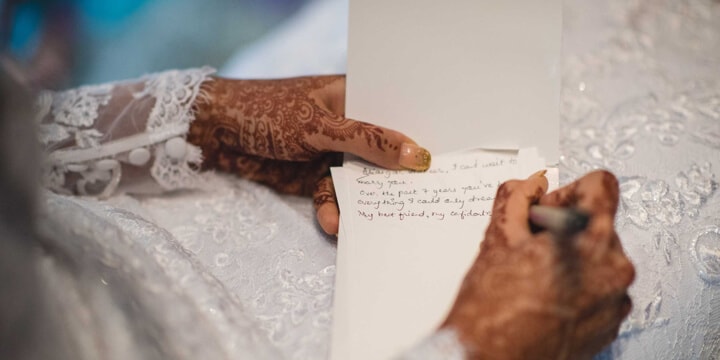 I can't wait to
marry you.
Over the past 7 years you've
everything I could only drea
My best friend, my confidan